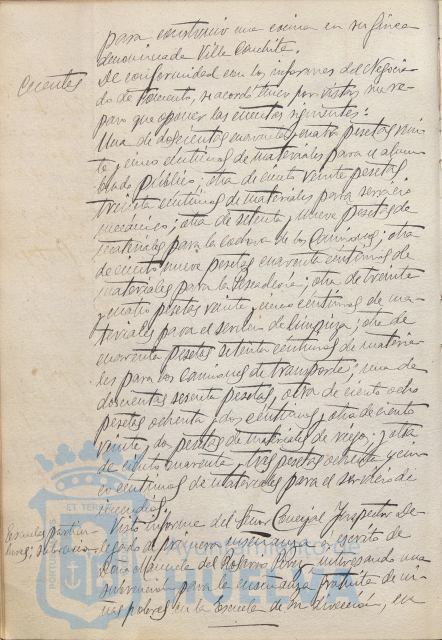 para construir una cocina en su finca
denominada Villa Conchita.
Cuentas
De conformidad con los informes del Negocia-
do de Fomento, se acordó tener por vistas sin re-
paro que oponer las cuentas siguientes:
Una de doscientas cuarenta y cuatro pesetas vein-
te y cinco céntimos de materiales para el alum-
brado público; otra de ciento veinte pesetas
treinta céntimos de materiales para servicio
mecánico; otra de setenta y nueve pesetas de
materiales para la Caseta de los Caminos; otra
de ciento nueve pesetas cuarenta céntimos de
materiales para la Pescadería; otra de treinta
y cuatro pesetas veinte y cinco céntimos de ma-
teriales para el servicio de limpieza; otra de
cuarenta pesetas setenta céntimos de materia-
les para los camiones de transporte; una de
doscientas sesenta pesetas, otra de ciento ocho
pesetas ochenta y dos céntimos, otra de ciento
veinte y dos pesetas de materiales de riego, y otra
de ciento cuarenta y tres pesetas ochenta y cin-
co céntimos de materiales para el servicio de
incendios.
Escuelas particu-
lares; subvención
Visto informe del Señor Concejal Inspector De-
legado de primera enseñanza a escrito de
Doña Manuela del Rosario Pérez interesando una
subvención para la enseñanza gratuita de ni-
ñas pobres en la Escuela de su dirección, en
Ayuntamiento de
HUELVA